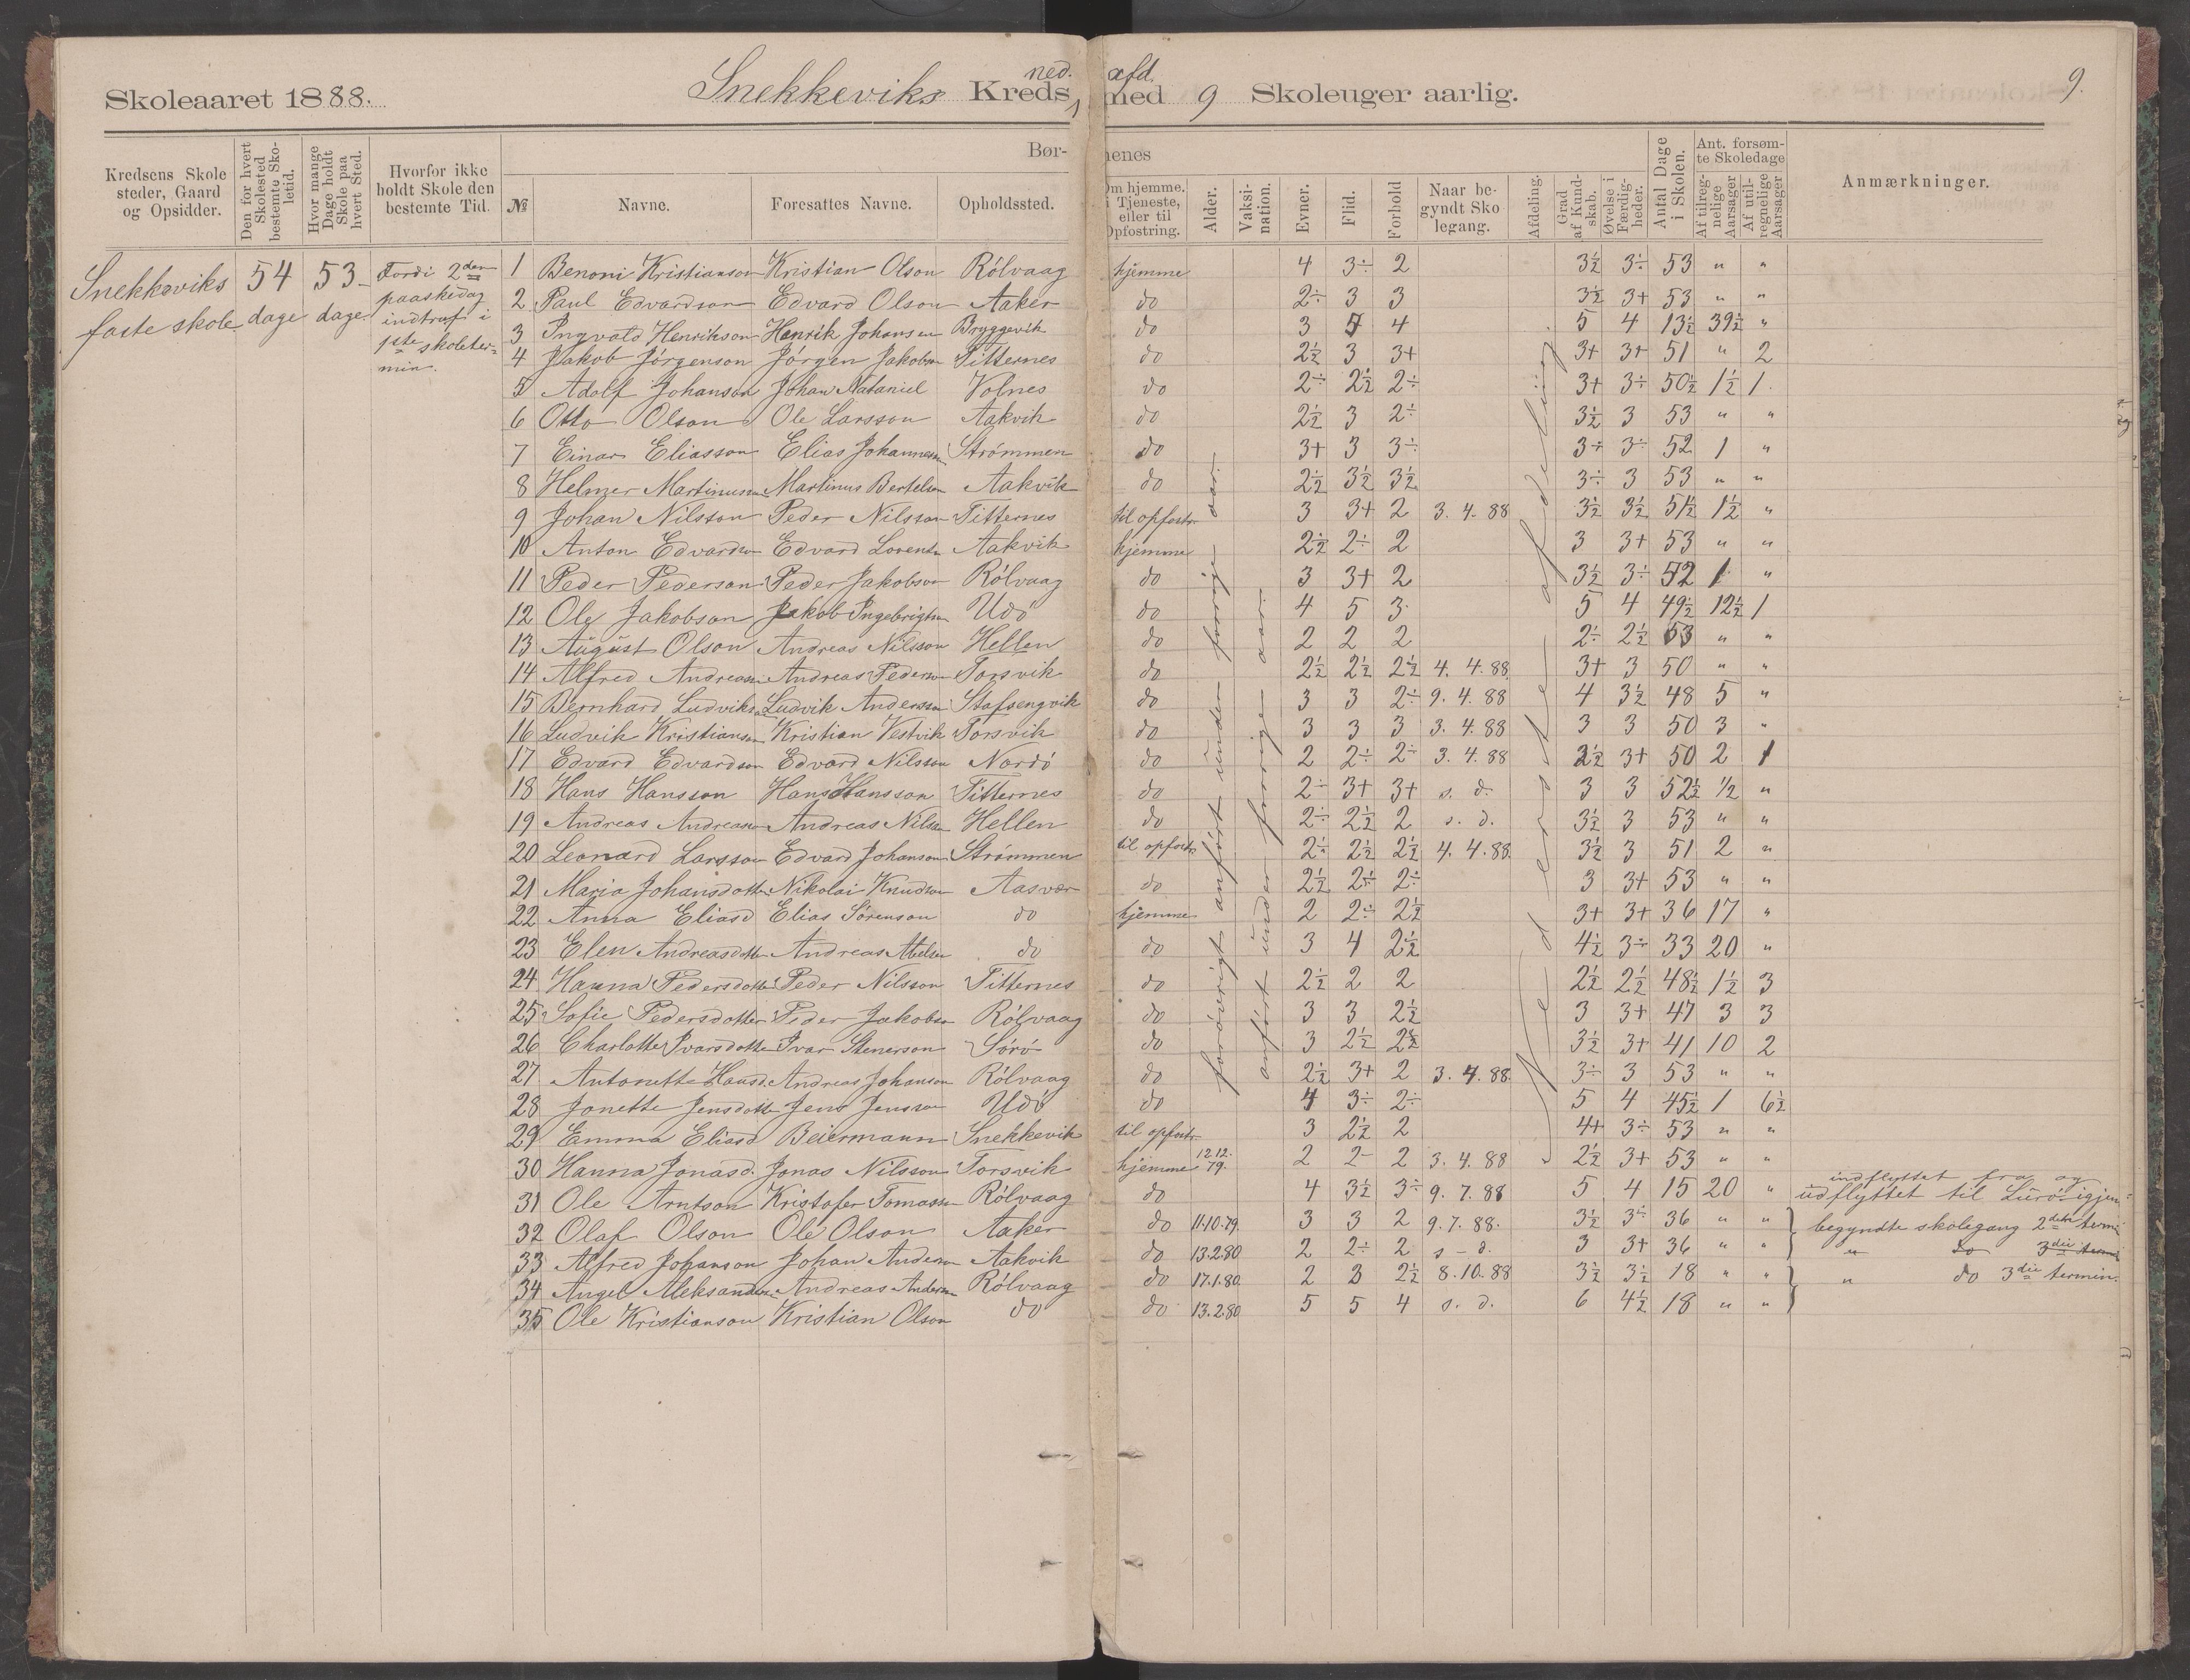 ned. afd. 9.
Skoleaaret 1888. Snekkeviks Kreds, med 9 Skoleuger aarlig.
Kredsens Skole steder, Gaard og Opsidder. Den for hvert Skolested bestemte Skoletid. Hvor mange Dage holdt Skole paa hvert Sted. Hvorfor ikke holdt Skole den bestemte Tid. Bør- nenes № Navne. Foresattes Navne. Opholdssted. Om hjemme, i Tjeneste, eller til Opfostring. Alder. Vaksi- nation. Evner. Flid. Forhold Naar be- gyndt Sko legang. Afdeling. Grad af Kund- skab. Øvelse i Færdig- heder. Antal Dage i Skolen. Ant. forsøm- te Skoledage Af tilreg- nelige Aarsager Af util- regnelige Aarsager Anmærkninger.
Snekkeviks faste skole 54 dage 53 dage. Fordi 2den paaskedag indtraf i 1ste skoleter- min.
forøverigt anført under forrige aar.
anført under forrige aar.
Nederste afdeling.
1 Benoni Kristianson Kristian Olson Rölvaag hjemme 4 3÷ 2 3½ 3÷ 53 " "
2 Paul Edvardson Edvard Olson Aaker do 2÷ 3 3 3½ 3+ 53 " "
3 Ingvald Henrikson Henrik Johansen Bryggevik do 3 5 4 5 4 13½ 39½ "
4 Jakob Jörgenson Jörgen Jakobsn Titternes do 2½ 3 3+ 3+ 3+ 51 " 2
5 Adolf Johanson Johan Nataniel Volnes do 2÷ 2½ 2÷ 3+ 3÷ 50½ 1½ 1.
6 Otto Olson Ole Larsson Aakvik do 2½ 3 2÷ 3½ 3 53 " "
7 Einar Eliasson Elias Johannesn Strömmen do 3+ 3 3÷ 3÷ 3÷ 52 1 "
8 Helmer Martinusn Martinus Bertelsn Aakvik do 2½ 3½ 3½ 3÷ 3 53 " "
9 Johan Nilsson Peder Nilsson Titternes til opfostr. 3 3+ 2 3. 4. 88 3½ 3½ 51½ 1½ "
10 Anton Edvardsn Edvard Lorents Aakvik hjemme 2½ 2÷ 2 3 3+ 53 " "
11 Peder Pederson Peder Jakobson Rölvaag do 3 3+ 2 3½ 3÷ 52 1 "
12 Ole Jakobson Jakob Ingebrigtsn Udö do 4 5 3 5 4 49½ 12½ 1
13 August Olson Andreas Nilsson Hellen do 2 2 2 2÷ 2½ 53 " "
14 Alfred Andreasn Andreas Pederson Torsvik do 2½ 2½ 2½ 4. 4. 88 3+ 3 50 " "
15 Bernhard Ludviksn Ludvik Andersson Stafsengvik do 3 3 2÷ 9. 4. 88 4 3½ 48 5 "
16 Ludvik Kristiansn Kristian Vestvik Torsvik do 3 3 3 3. 4. 88 3 3 50 3 "
17 Edvard Edvardson Edvard Nilsson Nordö do 2 2÷ 2÷ 3. 4. 88 2½ 3+ 50 2 1
18 Hans Hansson Hans Hansson Titternes do 2÷ 3+ 3+ s. d. 3 3 52½ ½ "
19 Andreas Andreasn Andreas Nilsn Hellen do 2÷ 2½ 2 s. d. 3½ 3 53 " "
20 Leonard Larsson Edvard Johanson Strömmen til opfostr. 2½ 2½ 2½ 4. 4. 88 3½ 3 51 2 "
21 Maria Johansdotter Nikolai Knudson Aasvær do 2½ 2÷ 2÷ 3 3+ 53 " "
22 Anna Eliasd Elias Sörenson do hjemme 2 2÷ 2½ 3+ 3+ 36 17 "
23 Elen Andreasdotter Andreas Abelsn do do 3 4 2½ 4½ 3÷ 33 20 "
24 Hanna Pedersdotter Peder Nilsson Titternes do 2½ 2 2 2½ 2½ 48½ 1½ 3
25 Sofie Pedersdotter Peder Jakobsn Rölvaag do 3 3 2½ 3 3+ 47 3 3
26 Charlotte Ivarsdotter Ivar Stenerson Sörö do 3 2½ 2½ 3½ 3+ 41 10 2
27 Antonette Hansd. Andreas Johanson Rölvaag do 2½ 3+ 2 3. 4. 88 3÷ 3 53 " "
28 Jonette Jensdotter Jens Jensson Udö do 4 3÷ 2÷ 5 4 45½ 1 6½
29 Emma Eliasd Beiermann Snekkevik til opfostr. 3 2½ 2 4+ 3÷ 53 " "
30 Hanna Jonasd. Jonas Nilsson Torsvik hjemme 12.12.79. 2 2- 2 3. 4. 88 2½ 3+ 53 " "
31 Ole Arntson Kristofer Tomassn Rölvaag do 4 3½ 3÷ 9. 7. 88 5 4 15 20 " indflyttet fra og udflyttet til Lurö igjen
32 Olaf Olson Ole Olson Aaker do 11.10.79. 3 3 2 9. 7. 88. 3½ 3÷ 36 " " begyndte skolegang 2den termi
33 Alfred Johanson Johan Anderson Aakvik do 13.2.80 2 2÷ 2 s - d. 3 3+ 36 " " " do 3die termi
34 Angel Aleksandersn Andreas Andersn Rölvaag do 17.1.80 2 3 2½ 8.10.88 3½ 3½ 18 " " " do 3die termin.
35 Ole Kristianson Kristian Olson do do 13.2.80 5 5 4 s. d. 6 4½ 18 " "